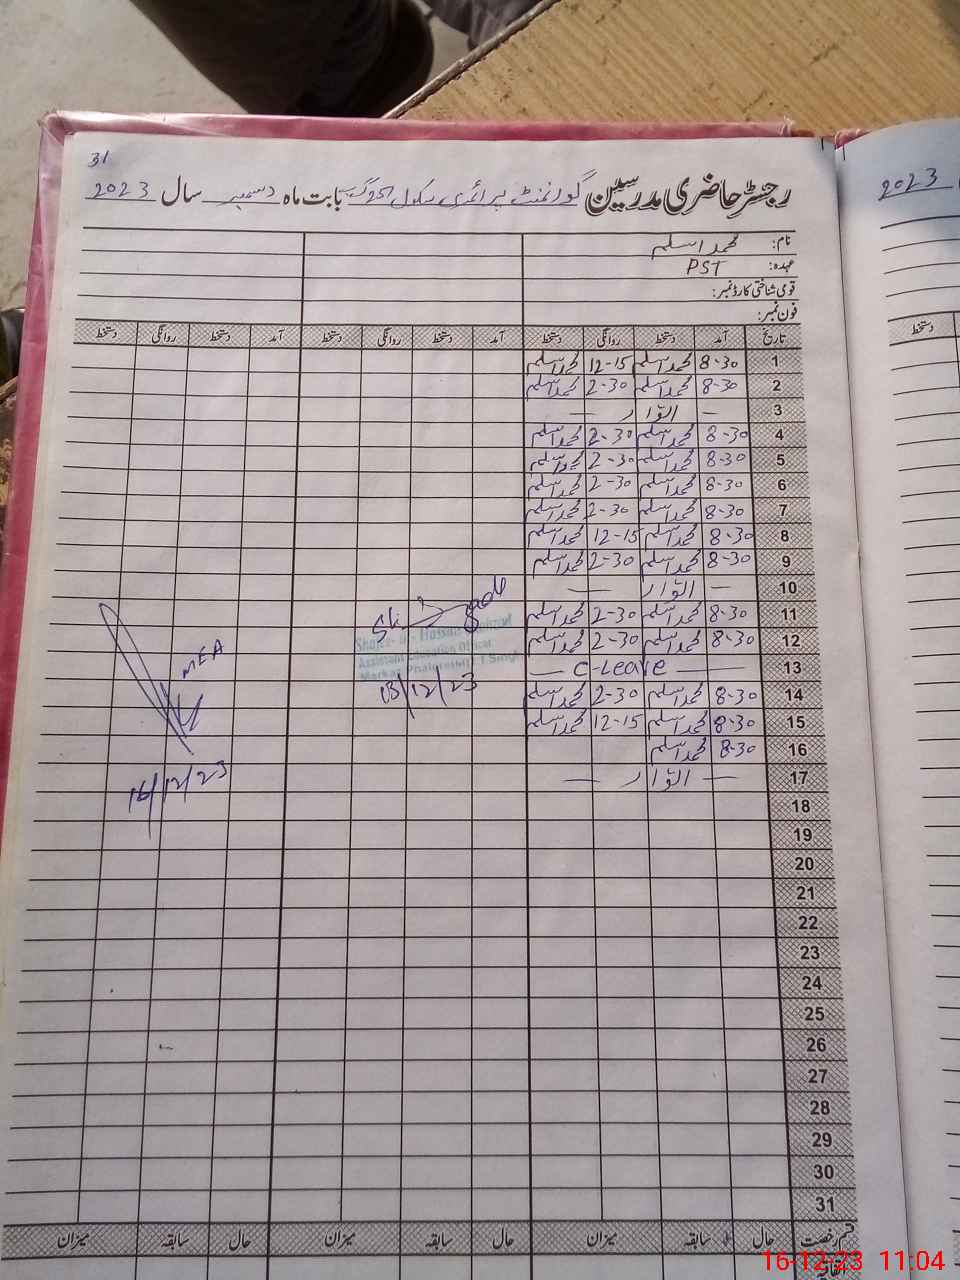 31
رجسٹر حاضری مدرسین گورنمنٹ پرائمری سکول بابت ماہ دسمبر سال 2023
2023
نام: محمد اسلم
عہدہ: PST
قومی شناختی کارڈ نمبر:
فون نمبر:
تاریخ آمد دستخط روانگی دستخط آمد دستخط روانگی دستخط آمد دستخط روانگی دستخط
دستخط
1 8-30 محمد اسلم 12-15 محمد اسلم
2 8-30 محمد اسلم 2-30 محمد اسلم
3 — اتوار —
4 8-30 محمد اسلم 2-30 محمد اسلم
5 8-30 محمد اسلم 2-30 محمد اسلم
6 8-30 محمد اسلم 2-30 محمد اسلم
7 8-30 محمد اسلم 2-30 محمد اسلم
8 8-30 محمد اسلم 12-15 محمد اسلم
9 8-30 محمد اسلم 2-30 محمد اسلم
10 — اتوار —
11 8-30 محمد اسلم 2-30 محمد اسلم
12 8-30 محمد اسلم 2-30 محمد اسلم
13 — C-Leave —
14 8-30 محمد اسلم 2-30 محمد اسلم
15 8-30 محمد اسلم 12-15 محمد اسلم
16 8-30 محمد اسلم
17 — اتوار —
18
19
20
21
22
23
24
25
26
27
28
29
30
31
Hassan
Assistant Education Officer
Markaz
13/12/23
MEA
16/12/23
قسم رخصت حال سابقہ میزان حال سابقہ میزان حال سابقہ میزان
اتفاقیہ
16-12-23 11:04